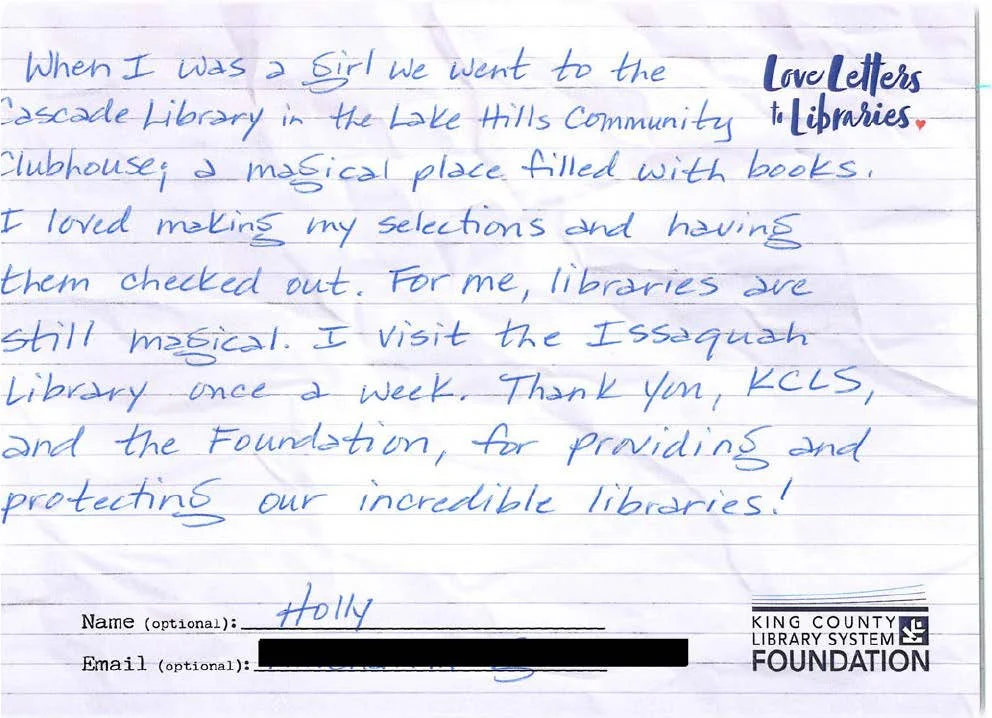 When I was a girl we went to the
Love Letters
to Libraries.
Cascade Library in the Lake Hills Community
Clubhouse; a magical place filled with books.
I loved making my selections and having
them checked out. For me, libraries are
still magical. I visit the Issaquah
Library once a week. Thank you, KCLS,
and the Foundation, for providing and
protecting our incredible libraries!
Name (optional): Holly
Email (optional):
KING COUNTY
LIBRARY SYSTEM
FOUNDATION